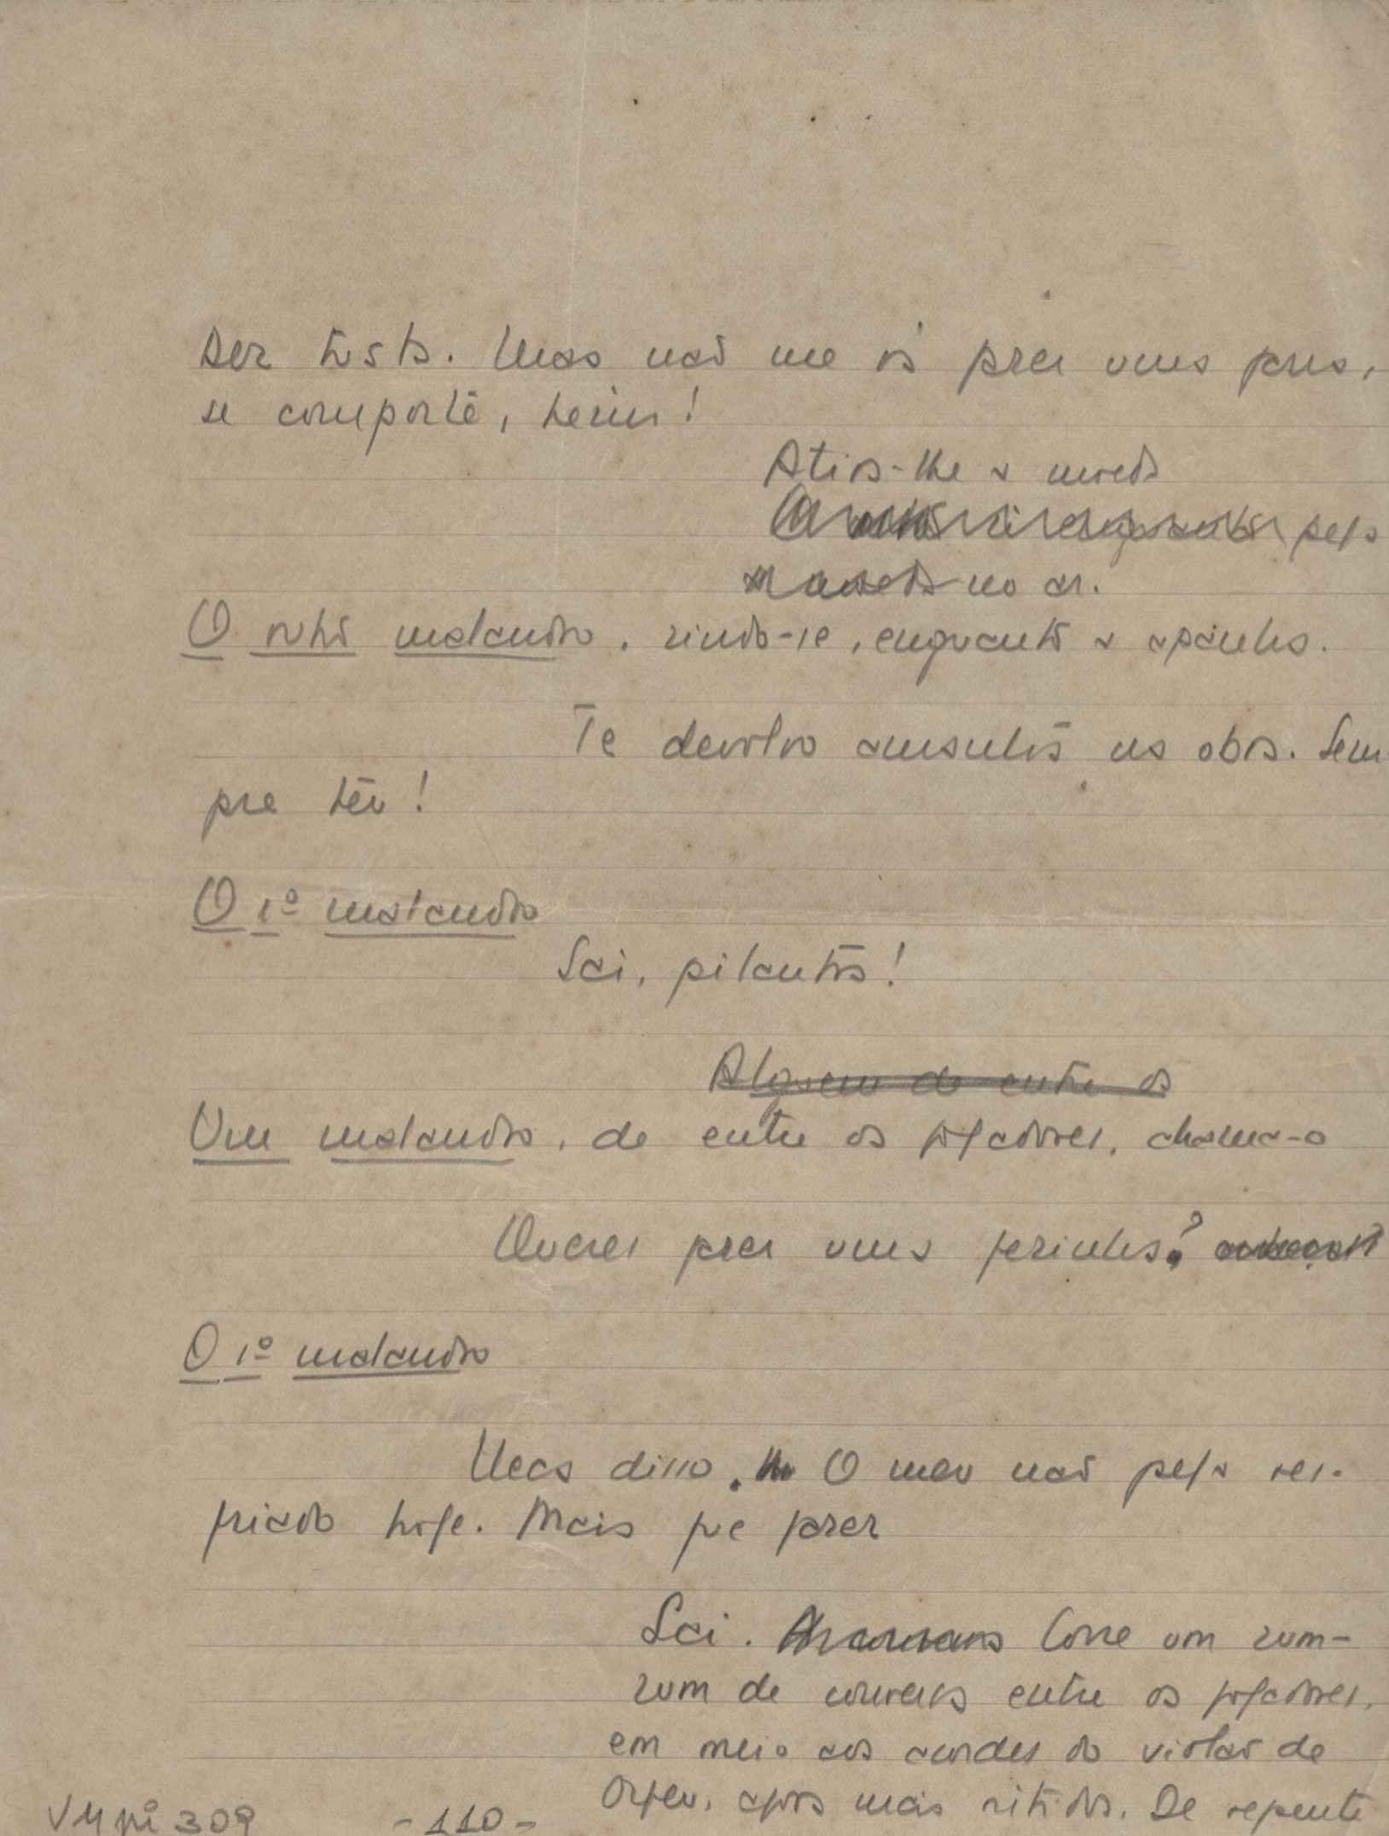 Dez tostão. Mas não me vá praí uma farra,
se comporte, heim!
Atira-lhe a moeda
pela
no ar.
O outro malandro, rindo-se, enquanto a apanha.
Te devolvo amanhã na obra. Sem
pre teu!
O 1º malandro
Sai, pilantra!
Alguém de entre os
Um malandro, de entre os jogadores, chama-o
Queres fazer uma ferinha?
O 1º malandro
Neca disso. O meu não pega res-
friado hoje. Mais que fazer
Sai. Corre um zum-
zum de conversa entre os jogadores,
em meio aos acordes do violão de
Orfeu, agora mais nítidos. De repente
VM pi 309 -110-